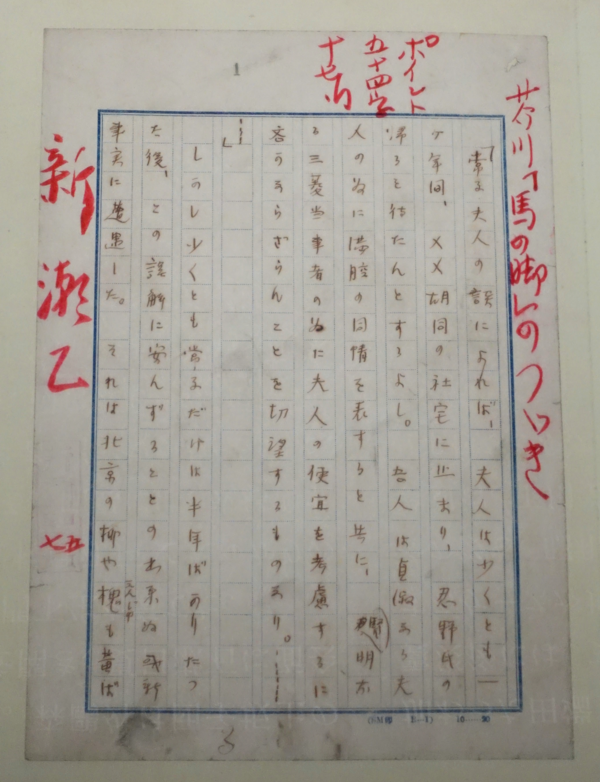 芥川「馬の脚」のつゞき
ポイント
五十四字
十七行
1
「常子夫人の談によれば、夫人は少くとも一
ケ年間、××胡同の社宅に止まり、忍野氏の
帰るを待たんとするよし。吾人は貞淑なる夫
人の為に満腔の同情を表すると共に、賢明な
る三菱当事者の為に夫人の便宜を考慮するに
吝かならざらんことを切望するものなり。……
……」
しかし少くとも常子だけは半年ばかりたつ
た後、この誤解に安んずることの出来ぬ或新
事実に遭遇した。それは北京の柳や槐も黄ば
新潮乙
七五
10—20
3